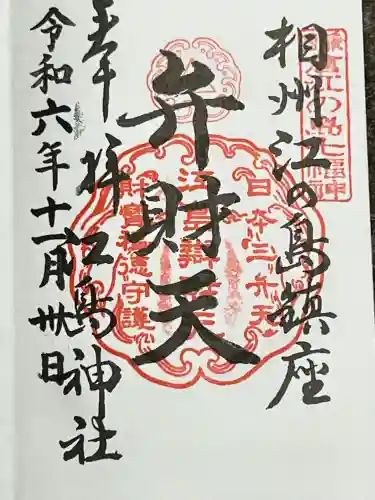 相州江の島鎮座
弁財天
奉拝 江島神社
令和六年十一月卅日
鎌倉江の島七福神
日本三弁天
江島辯財天
財寶福徳守護